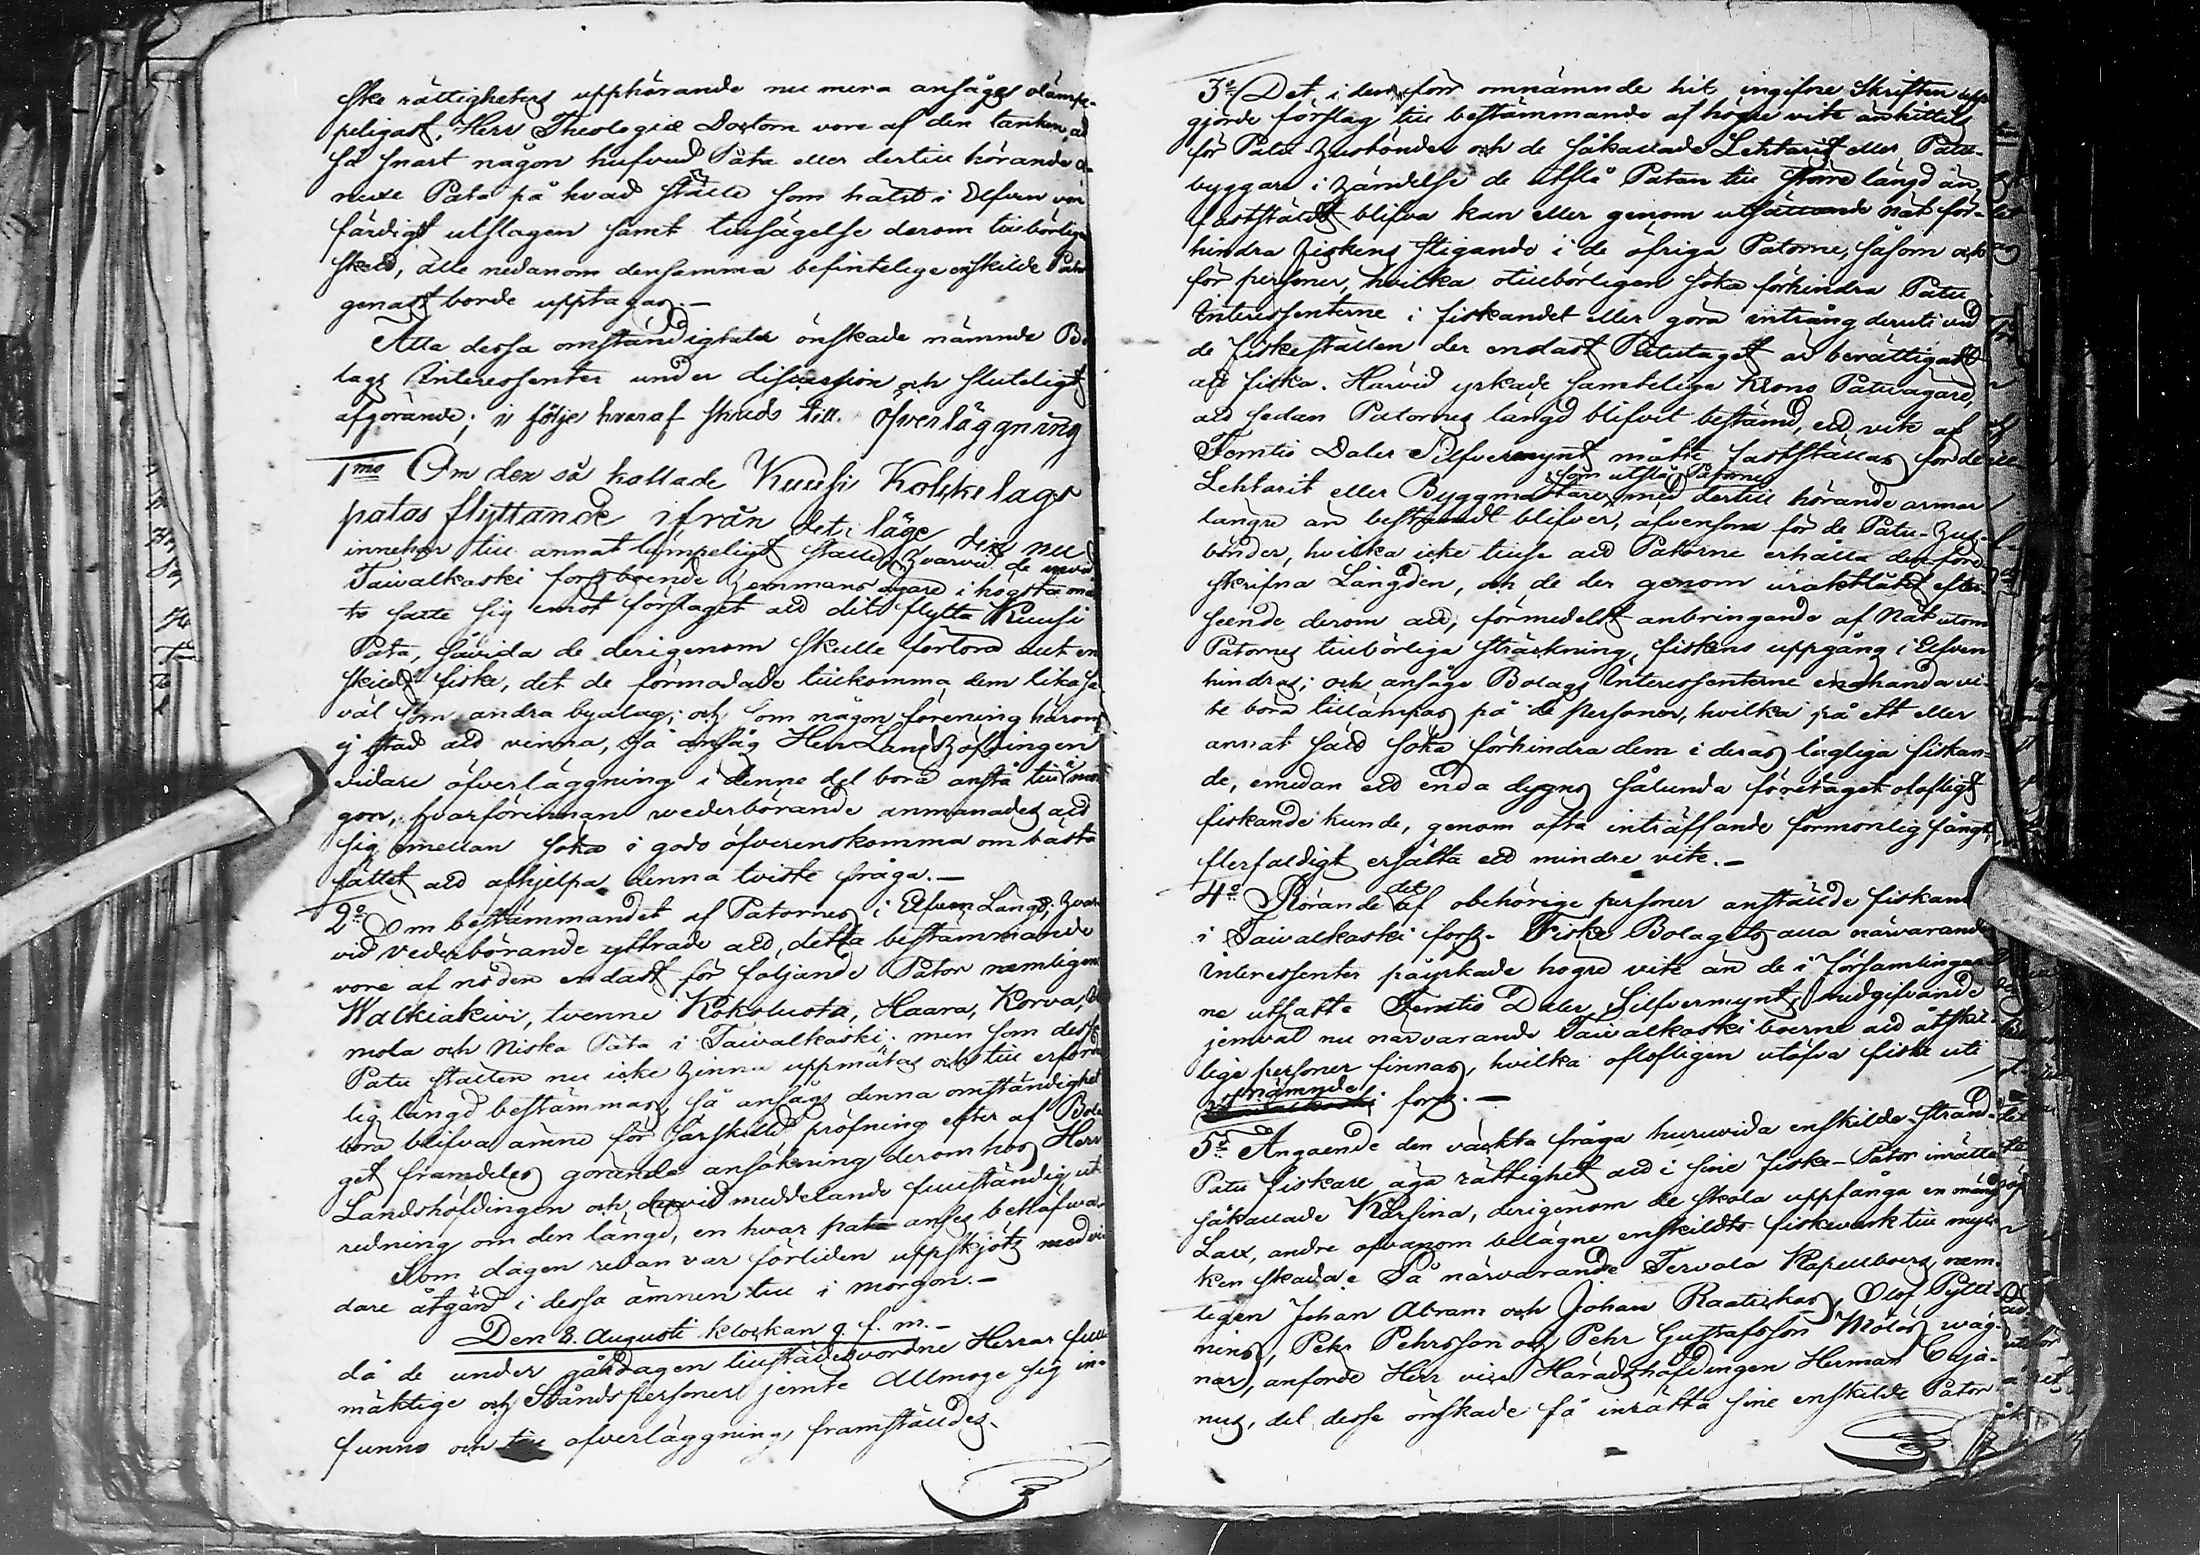 ske rättighetens upphörande nu mera ansåges olämpe-
peligast, Herr Theologiæ Doctorn vore af den tanken, at
så snart någon hufvud Påta eller dertill hörande a-
nexe Pata på hvad ställe som hälst i Elfven vore
färdigt utslagen samt tillsägelse derom tillbörligen
skedt, alle nedanom densamma befintelige enskilde Pator
genast borde upptagas.-
Alla dessa omständigheter önskade nämnde Bo-
lags Interessenter under discussion och sluteligt
afgörande; i följe hvaraf skreds till öfverläggning
1mo Om den så kallade Kuusi Koskelags
patas flyttande ifrån det läge den nu
innehar till annat lämpeligt ställe, hvarvid de
Taivalkoski fors boende hemmans ägare i högsta må-
to satte sig emot förslaget att dit flytta Kuusi
Pata, såvida de derigenom skulle förlora allt en-
skildt fiske, det de förmodade tillkomma dem lika så
väl som andra byalag; och som någon förening härom
ej stod att vinna, så ansåg Herr Landshöfdingen
vidare öfverläggning i denne del bora anstå till i mor-
gon, hvarförinnan vederbörande anmanades att
sig emellan söka i godo öfverenskomma om bästa
sättet att afhjelpa denna tviste fråga.-
2o Om bestämmandet af Patornes i Elfven Längd, hvar-
vid Vederbörande yttrade att, detta bestämmande
vore af nöden endast för följande Pator nemligen
Walkiakivi, tvenne Kokoluoto, Haara, Korva,
mola och Niska Pata i Taivalkoski; men som dessa
Patu ställen nu icke hinna uppmätas och till erforde-
lig längd bestämmas, så ansågs denna omständighet
bora blifva ämne för särskild pröfning efter af Bola-
get framdeles görande ansökning derom hos Herr
Landshöfdingen och dervid meddelande fullständig ut-
redning om den längd, en hvar pata anses behöfva.
Som dagen redan var förliden uppskjöts med vi-
dare åtgärd i dessa ämnen till i morgon.-
Den 8. Augusti klockan 9 f. m.-
då de under gårdagen tillstädesvordne Herrar full-
mäktige och Ståndspersoner jemte Allmoge sig in-
funno och öfverläggning, framställdes.
3o Det i den förr omnämnde hit ingifne Skriften upp-
gjorde förslag till bestämmande af högre vite änhittils
för Patu Husbönder och de såkallade Lehtarit eller Patu-
byggare i händelse de utslå Patan till större längd än
fastställdt blifva kan eller genom utsättande nät för-
hindra fiskens stigande i de öfriga Patorne, såsom ock
för personer, hvilka otillbörligen söka förhindra Patu
Interessenterne i fiskandet eller göra intrång deruti vid
de fiskeställen der endast Patulaget är berättigadt
att fiska. Härvid yrkade samtelige Krono Patuägare,
att sedan Patornes längd blifvit bestämd, ett vite af
Femtio Daler Silfvermynt måtte fastställas för de
Lehtarit eller Byggmästare som utslå Patorne med dertill hörande armar
längre än bestämdt blifver, äfvensom för de Patu-Hus-
bönder, hvilka icke tillse att Patorne erhålla den före-
skrifna Längden, och de der genom uraktlåtet efter-
seende derom att, förmedelst anbringande af Nät utom
Patornes tillbörliga sträckning, fiskens uppgång i Elfven
hindras; och ansågo Bolags Interessenterne enahanda vi-
te böra tillämpas på de personer, hvilka på ett eller
annat sätt söka förhindra dem i deras lagliga fiskan-
de, emedan ett enda dygns sålunda företaget olofligt
fiskande kunde, genom ofta inträffande förmonlig fångst,
flerfaldigt ersätta ett mindre vite.-
4o Rörande det af obehörige personer anställde fiskande
i Taivalkoski fors. Fiske Bolagets alla närvarande
Interessenter påyrkade högre vite än de i Församlingar-
ne utsatte Femtio Daler Silfvermynt, medgifvande
jemväl nu närvarande Taivalkoski boerne att åtskil-
lige personer finnas, hvilka olofligen utöfva fiske uti
nämnde fors.-
5o Angående den väckta fråga huruvida enskilde Strand-
Patu fiskare äga rättighet att i sine Fiske-Pator inrätta
såkallade Karsina, derigenom de skola uppfånga en mängd
Lax, andre ofvanom belägne enskildts fiskeverk till myc-
ken skada: Då närvarande Tervola Kapellboer, nem-
ligen Johan Abram och Johan Raatikas, Olof Pytti-
nins, Pehr Pehrsson och Pehr Gustafsson Mölös wäg-
nar, anförde Herr vice Häradshöfdingen Herman Caja-
nus, det desse önskade få inrätta sine enskilde Pator